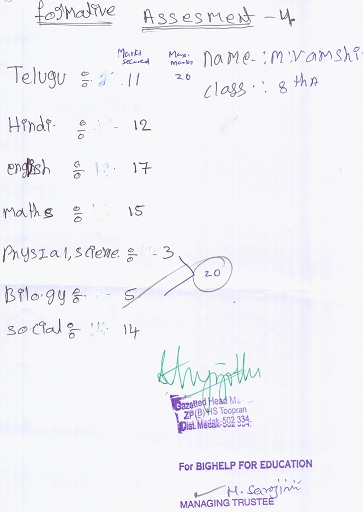 formative Assesment - 4
Marks secured Max. marks
name : M. Vamshi
Telugu : 11 20
class : 8 th A
Hindi : - 12
english : 17
maths : 15
Physial, sciene : - 3
20
Bilogy : 5
social : 14
Gazetted Head M
ZP(B)HS Toopran
Dist. Medak-502 334.
For BIGHELP FOR EDUCATION
M. Sarojini
MANAGING TRUSTEE